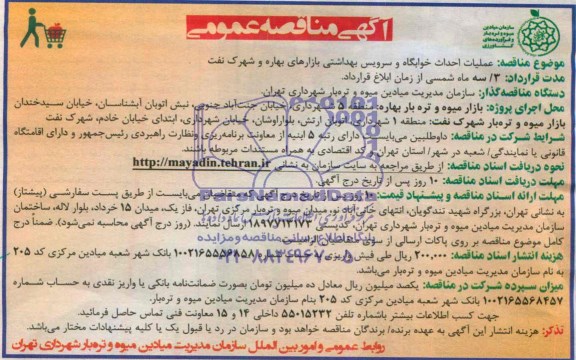 آگهی مناقصه عمومی
سازمان میادین
میوه و تره بار
و فرآورده‌های
کشاورزی
موضوع مناقصه: عملیات احداث خوابگاه و سرویس بهداشتی بازارهای بهاره و شهرک نفت
مدت قرارداد: ۳/ سه ماه شمسی از زمان ابلاغ قرارداد.
دستگاه مناقصه‌گذار: سازمان مدیریت میادین میوه و تره‌بار شهرداری تهران
محل اجرای پروژه: بازار میوه و تره بار بهاره: منطقه ۵ شهرداری، خیابان جنت‌آباد جنوبی، نبش اتوبان آبشناسان، خیابان سیدخندان
بازار میوه و تره‌بار شهرک نفت: منطقه ۱ شهرداری، خیابان ارتش، بلوار اوشان، خیابان شهرداری، ابتدای خیابان خادم، شهرک نفت
شرایط شرکت در مناقصه: داوطلبین می‌بایست دارای رتبه ۵ ابنیه از معاونت برنامه‌ریزی و نظارت راهبردی رئیس‌جمهور و دارای اقامتگاه
قانونی یا نمایندگی/ شعبه در شهر/ استان تهران و کد اقتصادی به همراه مستندات مربوطه باشند.
نحوه دریافت اسناد مناقصه: از طریق مراجعه به سایت سازمان به نشانی http://mayadin.tehran.ir
مهلت دریافت اسناد مناقصه: ۱۰ روز پس از تاریخ درج آگهی
مهلت ارائه اسناد مناقصه و پیشنهاد قیمت: می‌بایست از طریق پست سفارشی (پیشتاز)
به نشانی تهران، بزرگراه شهید تندگویان، انتهای خانی آباد نو، میدان میوه و تره‌بار مرکزی تهران، فاز یک، میدان ۱۵ خرداد، بلوار لاله، ساختمان
سازمان مدیریت میادین میوه و تره‌بار شهرداری تهران، کدپستی ۱۸۹۷۷۱۳۱۷۳ ارسال نمایند. (روز درج آگهی محاسبه نمی‌شود). ضمناً درج
کامل موضوع مناقصه بر روی پاکات ارسالی از سوی متقاضیان الزامی است.
هزینه انتشار اسناد مناقصه: ۲۰۰٫۰۰۰ ریال طی فیش واریزی بانک شهر شعبه میادین مرکزی کد ۲۰۵
به نام سازمان مدیریت میادین میوه و تره‌بار می‌باشد.
میزان سپرده شرکت در مناقصه: یکصد میلیون ریال معادل ده میلیون تومان بصورت ضمانت‌نامه بانکی یا واریز نقدی به حساب شماره
۱۰۰۲۱۶۵۵۶۸۴۵۷ بانک شهر شعبه میادین مرکزی کد ۲۰۵ بنام سازمان مدیریت میادین میوه و تره‌بار.
جهت کسب اطلاعات بیشتر باشماره تلفن ۵۵۰۱۵۲۳۲ داخلی ۱۴ و ۱۵ معاونت فنی تماس حاصل فرمائید.
تذکر: هزینه انتشار این آگهی به عهده برنده/ برندگان مناقصه خواهد بود و سازمان در رد یا قبول یک یا کلیه پیشنهادات مختار می‌باشد.
روابط عمومی و امور بین الملل سازمان مدیریت میادین میوه و تره‌بار شهرداری تهران
ParsNamadData
پایگاه اطلاع رسانی مناقصه و مزایده
۰۲۱-۸۸۳۴۹۶۷۰-۵